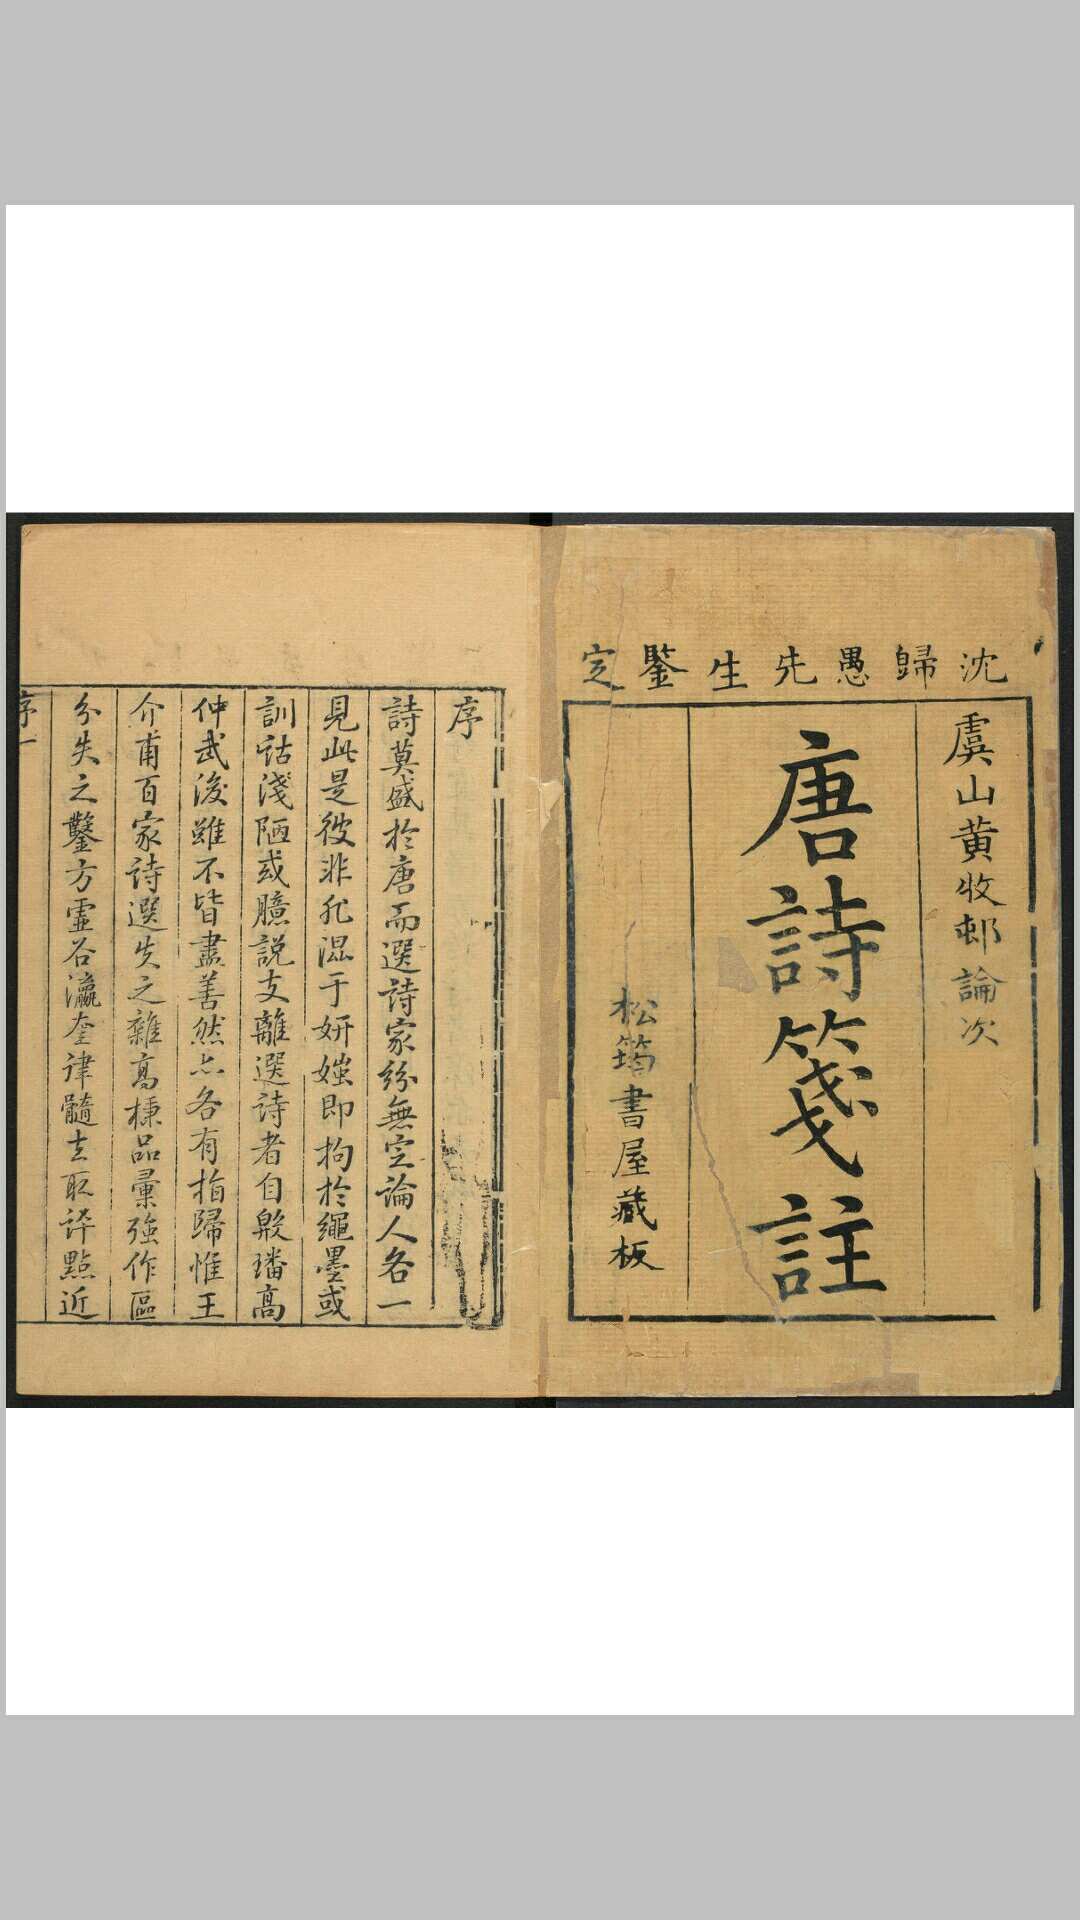 沈歸愚先生鑒定
虞山黄收邨論次
唐詩箋註
松筠書屋藏板
序
詩莫盛於唐而選詩家紛無定論人各一
見此是彼非孔混于妍媸即拘於繩墨或
訓詁淺陋或臆說支離選詩者自殷璠高
仲武後雖不皆盡善然亦各有指歸惟王
介甫百家詩選失之雜高棅品彙強作區
分失之鑿方虛谷瀛奎律髓去取評點近
序一